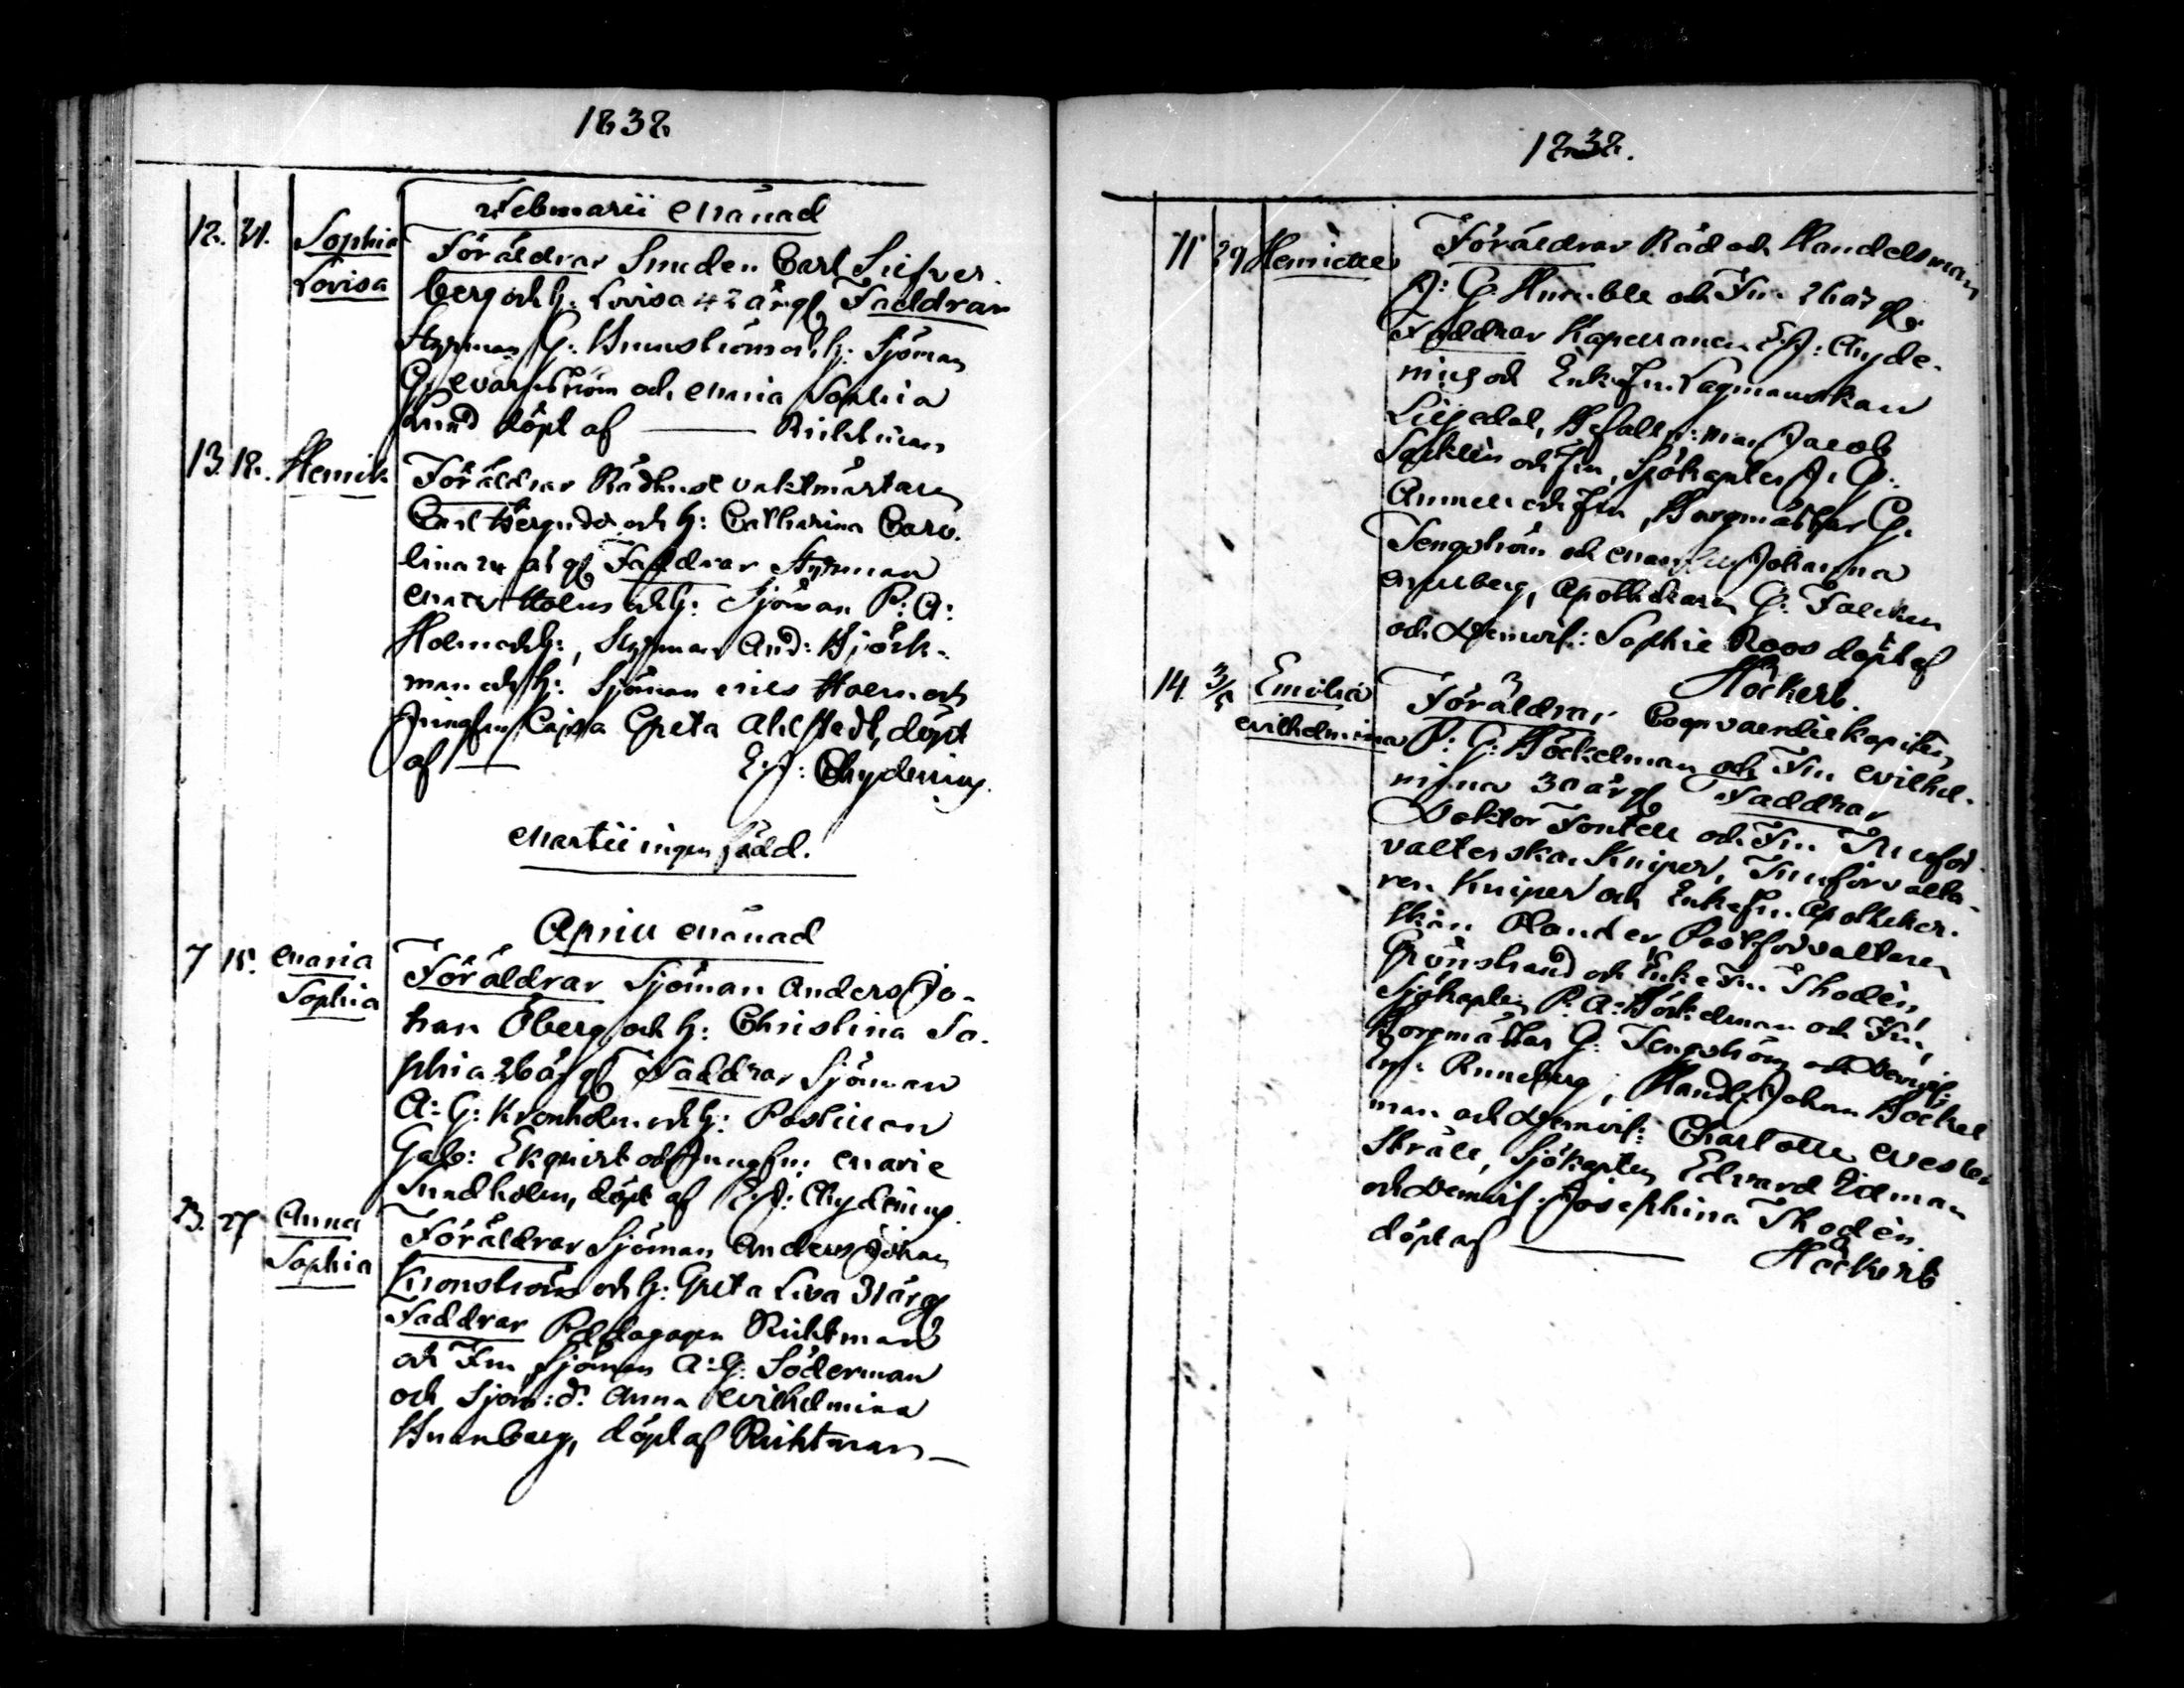 1838
Februarii Månad
12. 21. Sophia Lovisa
Föräldrar Smeden Carl Silfver-
berg och h: Lovisa 42 år gl Faddrar
Styrman G: Brunström och h: Sjöman
G: Wärnström och Maria Sophia
Lund döpt af — Richtman
13. 18. Henrik
Föräldrar Rådhus vaktmästaren
Carl Berg och h: Catharina Caro-
lina 24 år gl Faddrar Styrman
Holm och h: Sjöman P: A:
Holm och h:, Styrman And: Björk-
man och h: Sjöman Nils Holm och
Jungfru Cajsa Greta Ahlstedt, döpt
af — E: J: Chydenius.
Martii ingen född.
April Månad
7 15. Maria Sophia
Föräldrar Sjöman Anders Jo-
han Öberg och h: Christina So-
phia 26 år gl Faddrar Sjöman
A: G: Kronholm och h: Postiljon
Gab: Ekqvist och Jungfru: Marie
Lundholm, döpt af E: J: Chydenius.
23. 27 Anna Sophia
Föräldrar Sjöman Anders Johan
Kronström och h: Greta Lisa 31 år gl
Faddrar Pedagogen Richtman
och Fru, Sjöman A: G: Söderman
och Sjöm: d: Anna Wilhelmina
döpt af Richtman —
1838.
11 29 Henriette
Föräldrar Råd och Handelsman
J: G: Humble och Fru 26 år gl
Faddrar Kapellanen E: J: Chyde-
nius och Enkefru Lagmanskan
Liljedal, Befalln: man Jacob
och Fru, Sjökapten J: G:
och Fru, Borgmästar G:
Tengström och Johanna
Apothekaren G: Falcken
och Demois: Sophie Roos döpt af
Höckert.
14. 3/5 Emilia Wilhelmina
Föräldrar Coopvaerdiekapiten
P: G: Böckelman och Fru Wilhel-
mina 30 år gl Faddrar
Doktor Fontell och Fru Tullför-
valterskan Kniper, Tullförvalta-
ren Kniper och Enkefru Apotheker-
skan Olander, Postförvaltaren
Grönstrand och Enke Fru Thodèn,
Sjökapten P: A: Böckelman och Fru,
Borgmästar G: Tengström och Demois:
Runeberg, Handl: Johan Böckel
man och Demois: Charlotte Wester
Stråle, Sjökapten Edvard Eidman
och Demois: Josephina Thodèn.
döpt af — Höckert